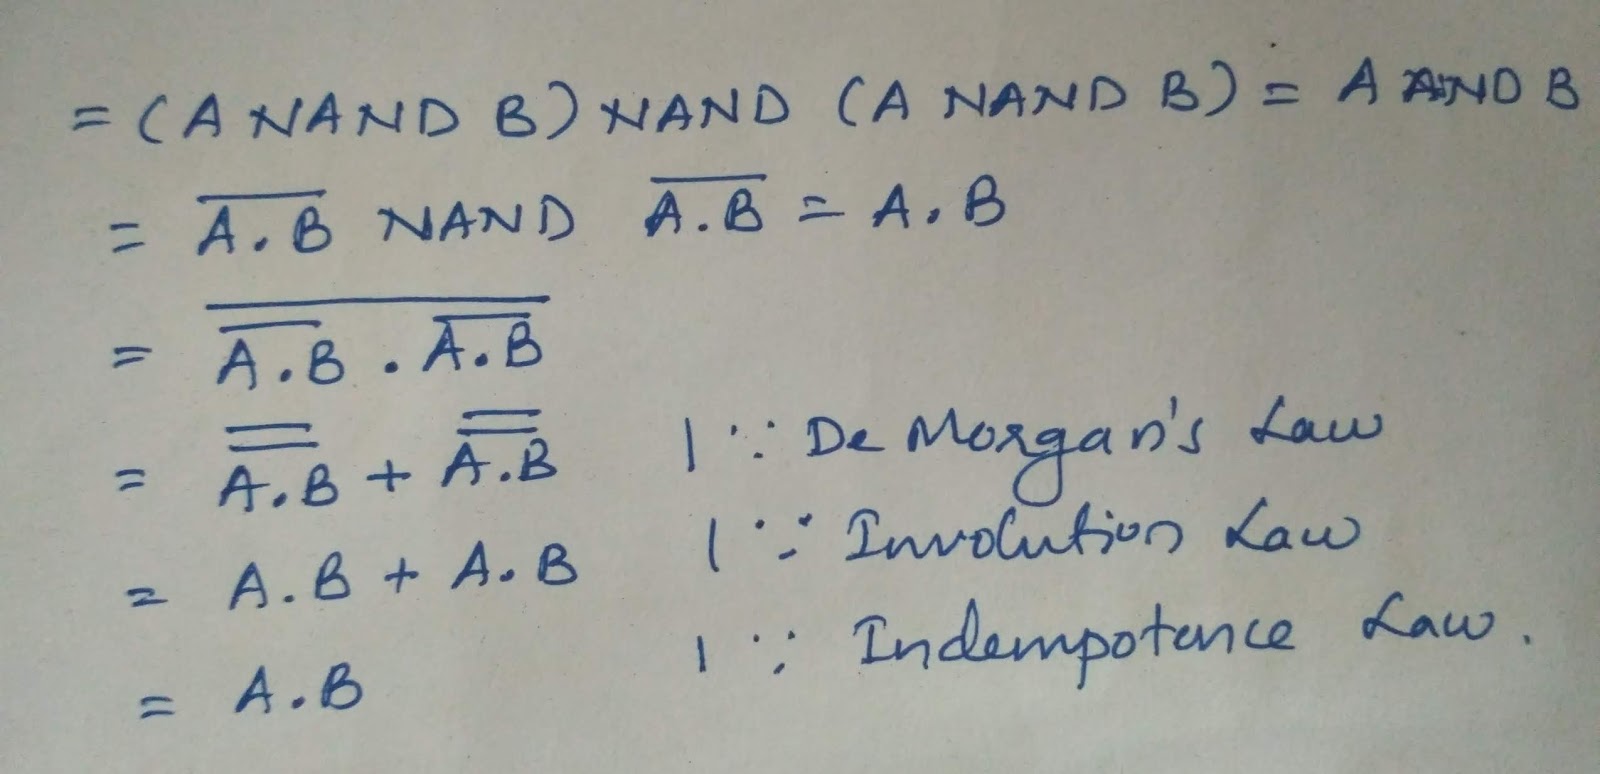 = (A NAND B) NAND (A NAND B) = A AND B
= \overline{A.B} NAND \overline{A.B} = A.B
= \overline{\overline{A.B} . \overline{A.B}}
= \overline{\overline{A.B}} + \overline{\overline{A.B}} | ∵ De Morgan's Law
= A.B + A.B | ∵ Involution Law
= A.B | ∵ Indempotence Law.